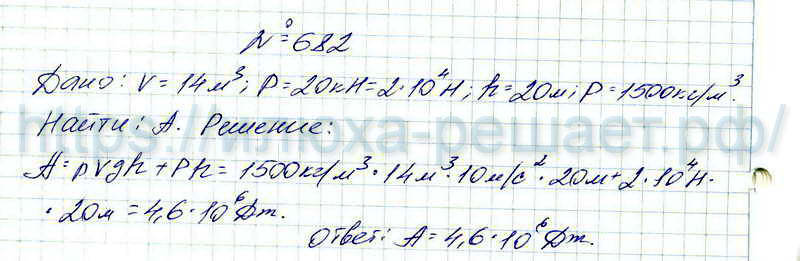 № 682
Дано: V = 14 м³; P = 20 кН = 2·10⁴ Н; h = 20 м; ρ = 1500 кг/м³.
https://илюха-решает.рф/
Найти: A. Решение:
A = ρVgh + Ph = 1500 кг/м³ · 14 м³ · 10 м/с² · 20 м + 2·10⁴ Н ·
· 20 м = 4,6·10⁶ Дж.
Ответ: A = 4,6·10⁶ Дж.